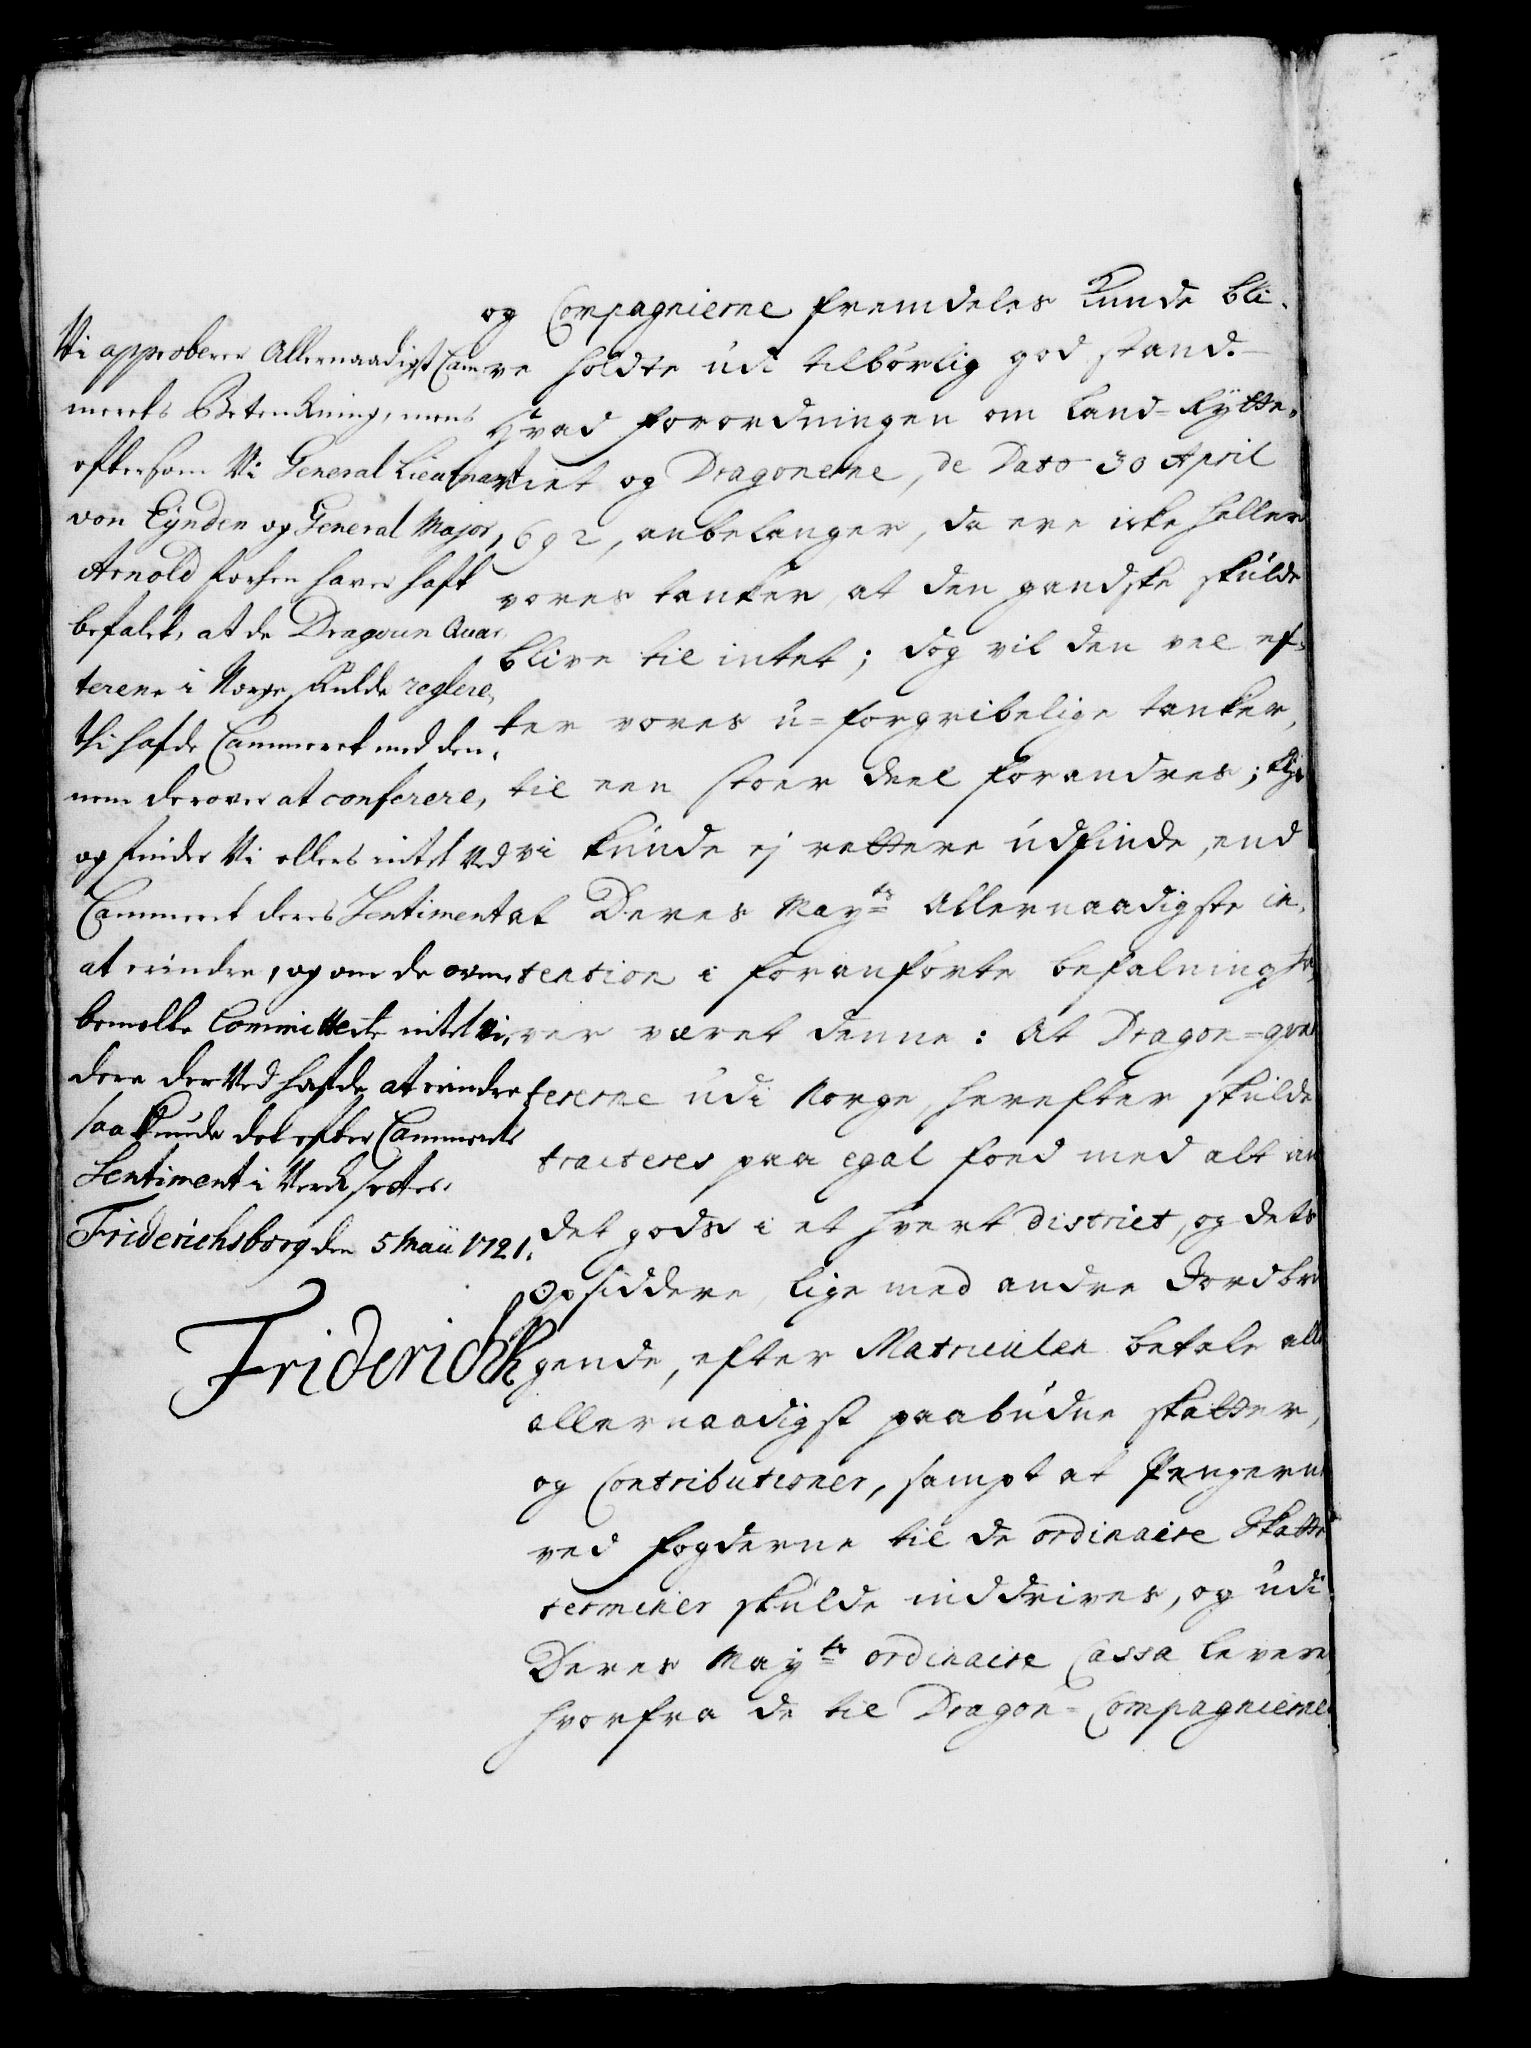 Vi approberer Allernaadigst Cam
merets Betenkning, mens
eftersom Vi General Lieutnant
von Eÿnden og General Major
Arnold forhen haver haft
befalet, at de Dragoun Quar
terene i Norge skulde reglere,
thi hafde Cammeret med den,
nem derover at conferere,
og finder Vi ellers intet ved
Cammeret deres Sentiment
at erindre, og om de oven
bemelte Committerte intet vi,
dere derVed hafde at erindre
saa kunde det efter Cammerets
Sentiment i Verck settes.
Friderichsborg den 5 Maii 1721.
Friderich R
og Compagnierne fremdeles kunde bli-
ve holdte udi tilbørlig god stand.
Hvad Forordningen om Land-Rytte-
riet og Dragonerne, de Dato 30 April
1692, anbelanger, da ere icke heller
vores tanker, at den gandske skulde
blive til intet; dog vil den vel ef-
ter vores u-forgribelige tanker,
til een stoer deel forandres; thi
vi kunde ej rettere udfinde, end
at Deres Mayts Allernaadigste in-
tention i foranførte befalning ha,
ver været denne: At Dragon-qvar
tererne udi Norge, herefter skulde
tracteres paa egal foed med alt an
det gods i et hvert district, og dets
Opsiddere, lige med andre Jordbru
gende, efter Matriculen betale alle
allernaadigst paabudne skatter,
og Contributioner, sampt at Pengerne
ved fogderne til de ordinaire Skatte
terminer skulde inddrives, og udi
Deres Mayts ordinaire Cassa levere
hvorfra de til Dragon-Compagnierne